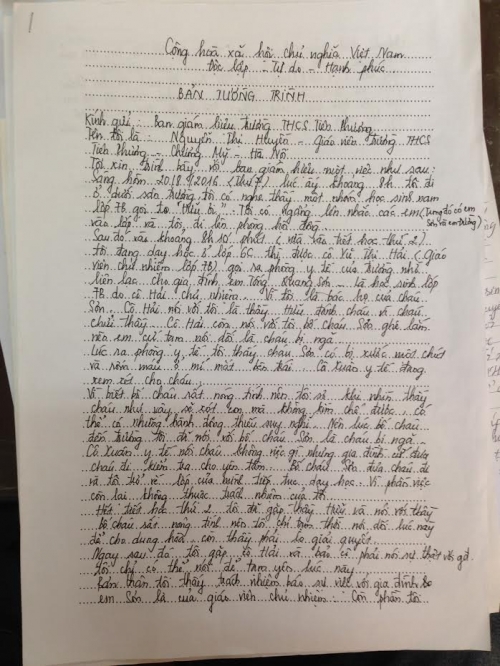 Cộng hoà xã hội chủ nghĩa Việt Nam
Độc lập - Tự do - Hạnh phúc
BẢN TƯỜNG TRÌNH
Kính gửi: Ban giám hiệu trường THCS Tiên Phương
Tên tôi là: Nguyễn Thị Huyền - Giáo viên trường THCS
Tiên Phương - Chương Mỹ - Hà Nội
Tôi xin trình bày với ban giám hiệu một việc như sau:
Sáng hôm 20.8.2016 (thứ 7) lúc ấy khoảng 8h tôi đi
ở dưới sân trường tôi có nghe thấy một nhóm học sinh nam
lớp 7B gọi to. Tôi có ngăng lên nhắc các em (Trong đó có em
vào lớp và tôi đi lên phòng hội đồng
Sau đó vào khoảng 8h10 phút (vừa vào tiết học thứ 2)
tôi đang dạy học ở lớp 6C thì được cô Hải (Giáo
viên chủ nhiệm lớp 7B) gọi ra phòng y tế của trường nhờ
liên lạc cho gia đình em Tống Quang Sơn - là học sinh lớp
7B do cô Hải chủ nhiệm. Vì tôi là bác họ của cháu
Sơn. Cô Hải nói với tôi là thầy đánh cháu và cháu
chửi thầy. Cô Hải còn nói với tôi bố cháu Sơn ghê lắm
nếu em cứ tạm nói dối là cháu bị ngã
Lúc ra phòng y tế tôi thấy cháu Sơn có bị xước một chút
và rớm máu ở mí mắt bên trái. Cô Xuân y tế đang
xem xét cho cháu.
Vì biết bố cháu rất nóng tính nên tôi sợ khi nhìn thấy
cháu như vậy sẽ xót con mà không kìm chế được. Có
thể có những hành động thiếu suy nghĩ. Nên lúc bố cháu
đến trường tôi đã nói với bố cháu Sơn là cháu bị ngã.
Cô Xuân y tế nói cháu không việc gì nhưng gia đình cứ đưa
cháu đi kiểm tra cho yên tâm. Bố cháu Sơn đưa cháu đi
và tôi trở về lớp của mình tiếp tục dạy học. Vì phần việc
còn lại không thuộc trách nhiệm của tôi.
Hết tiết học thứ 2 tôi đã gặp thầy và nói với thầy
bố cháu rất nóng tính nên tôi chỉ tạm thời nói dối lúc này
để cho dung hoà còn thầy phải lo giải quyết.
Ngay sau đó tôi gặp cô Hải và bảo cô phải nói sự thật với gđ.
Tôi chỉ có thể nói để tạm yên lúc này
Bản thân tôi thấy trách nhiệm báo sự việc với gia đình
em Sơn là của giáo viên chủ nhiệm. Còn phần tôi